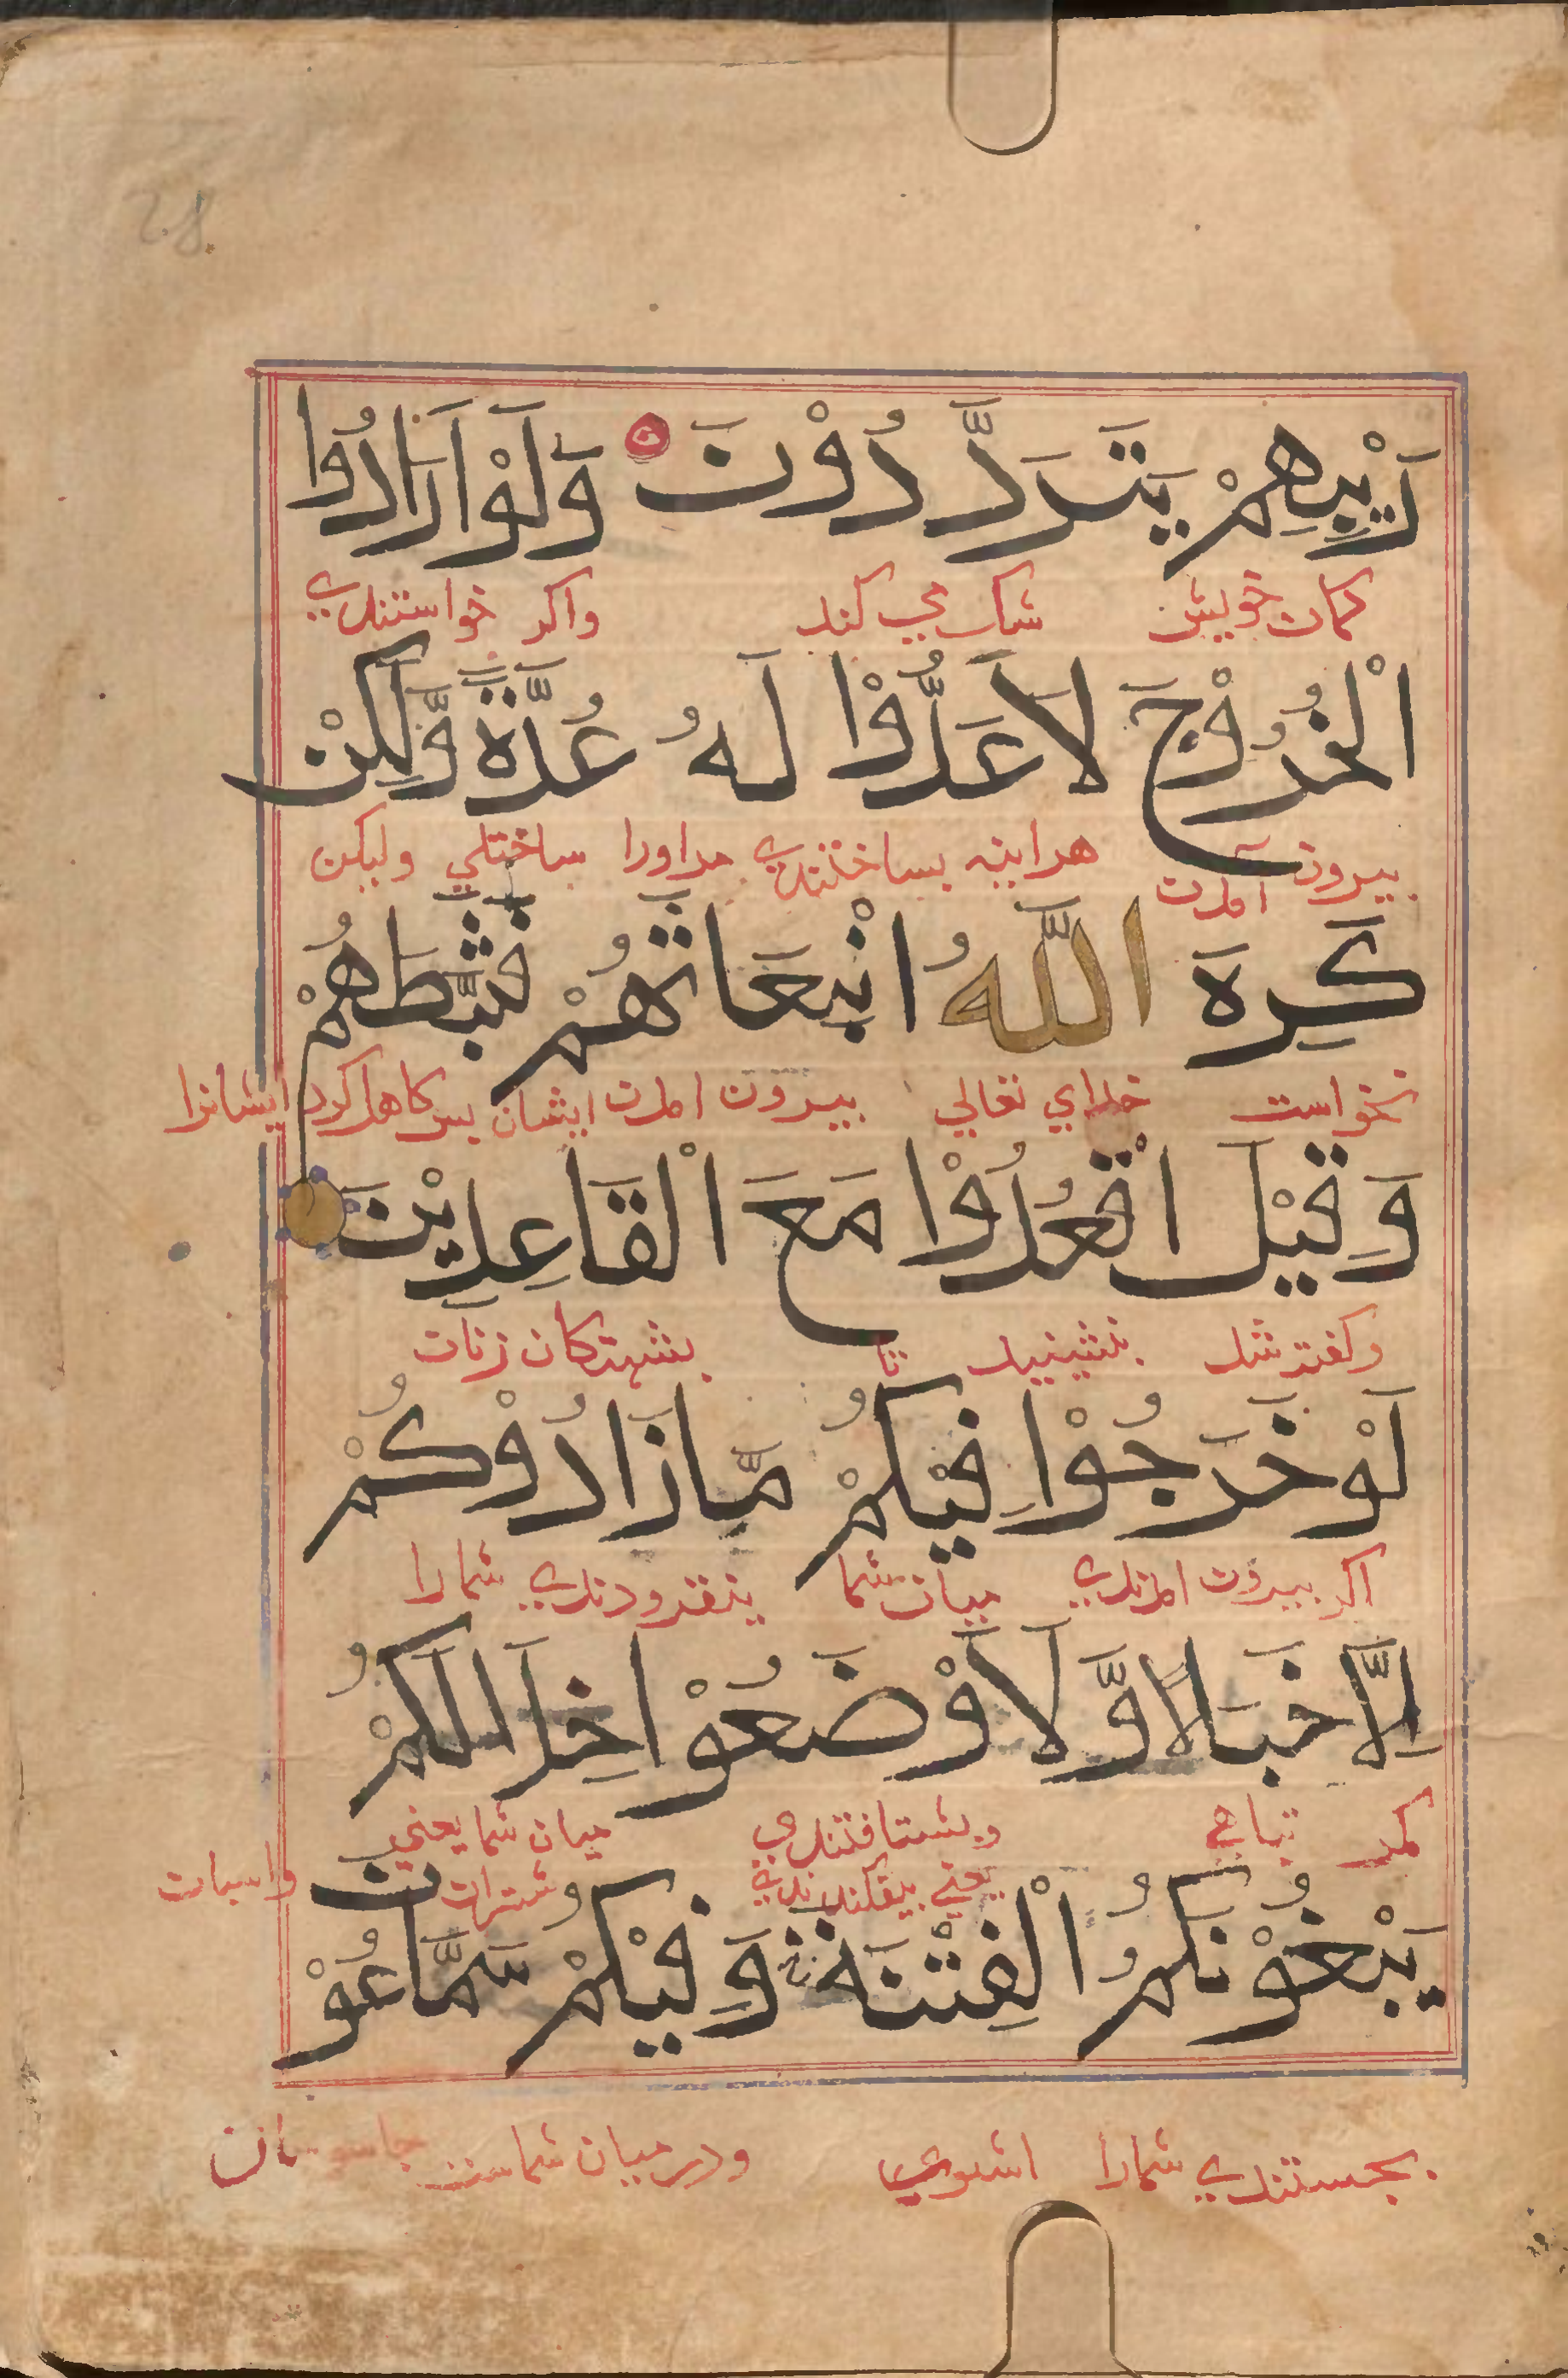 28
رَيْبِهِمْ يَتَرَدَّدُوْنَ ۝ وَلَوْ اَرَادُوا
کمان خویش شک می کنند واکر خواستندی
الْخُرُوْجَ لَاَعَدُّوْا لَهُ عُدَّةً وَّلَكِنْ
بیرون آمدن هراینه بساختندی مراورا ساختکی ولیکن
كَرِهَ اللّٰهُ انْبِعَاثَهُمْ فَثَبَّطَهُمْ
نخواست خدای تعالی بیرون امدن ایشان بس کاهل کرد ایشانرا
وَقِيْلَ اقْعُدُوْا مَعَ الْقَاعِدِيْنَ
وکفته شد بنشینید با نشستکان زنان
لَوْ خَرَجُوْا فِيْكُمْ مَّا زَادُوْكُمْ
اکر بیرون امدندی میان شما نفزودندی شمارا
اِلَّا خَبَالًا وَّلَاَوْضَعُوْا خِلَالَكُمْ
مکر تباهی وبشتافتندی میان شما یعنی
یعنی بیفکندندی شتران واسبان
يَبْغُوْنَكُمُ الْفِتْنَةَ وَفِيْكُمْ سَمَّاعُوْنَ
بجستندی شمارا اشوبی ودرمیان شماست جاسوسان